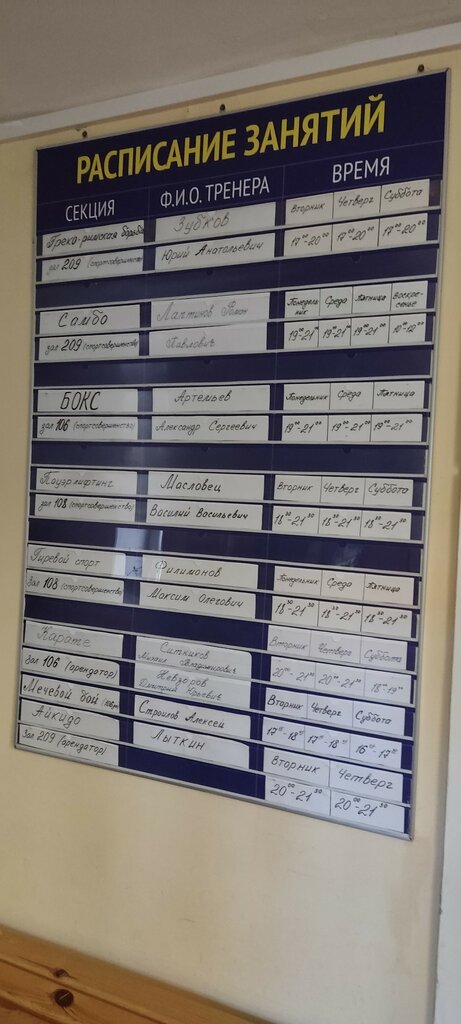 РАСПИСАНИЕ ЗАНЯТИЙ
СЕКЦИЯ Ф.И.О. ТРЕНЕРА ВРЕМЯ
Греко-римская борьба Зубков Вторник Четверг Суббота
зал 209 (спортсовершенств Юрий Анатольевич 17⁰⁰-20⁰⁰ 17⁰⁰-20⁰⁰ 17⁰⁰-20⁰⁰
Самбо Лаптинов Роман Понедельник Среда Пятница Воскресенье
зал 209 (спортсовершенство Павлович 19⁰⁰-21⁰⁰ 19⁰⁰-21⁰⁰ 19⁰⁰-21⁰⁰ 10⁰⁰-12⁰⁰
БОКС Артемьев Понедельник Среда Пятница
зал 106 (спортсовершенство) Александр Сергеевич 19⁰⁰-21⁰⁰ 19⁰⁰-21⁰⁰ 19⁰⁰-21⁰⁰
Пауэрлифтинг Масловец Вторник Четверг Суббота
зал 108 (спортсовершенство) Василий Васильевич 18³⁰-21³⁰ 18³⁰-21³⁰ 18³⁰-21³⁰
Гиревой спорт Филимонов Понедельник Среда Пятница
Зал 108 (спортсовершенство) Максим Олегович 18³⁰-21³⁰ 18³⁰-21³⁰ 18³⁰-21³⁰
Каратe Ситников Михаил Владимирович Вторник Четверг Суббота
Зал 106 (арендатор) Невзоров Дмитрий Юрьевич 20⁰⁰-21³⁰ 20⁰⁰-21³⁰ 18⁰⁰-19³⁰
Мечевой бой Строилов Алексей Вторник Четверг Суббота
17-18 17-18 16-17
Айкидо Лыткин Вторник Четверг
Зал 209 (арендатор) 20⁰⁰-21³⁰ 20⁰⁰-21³⁰